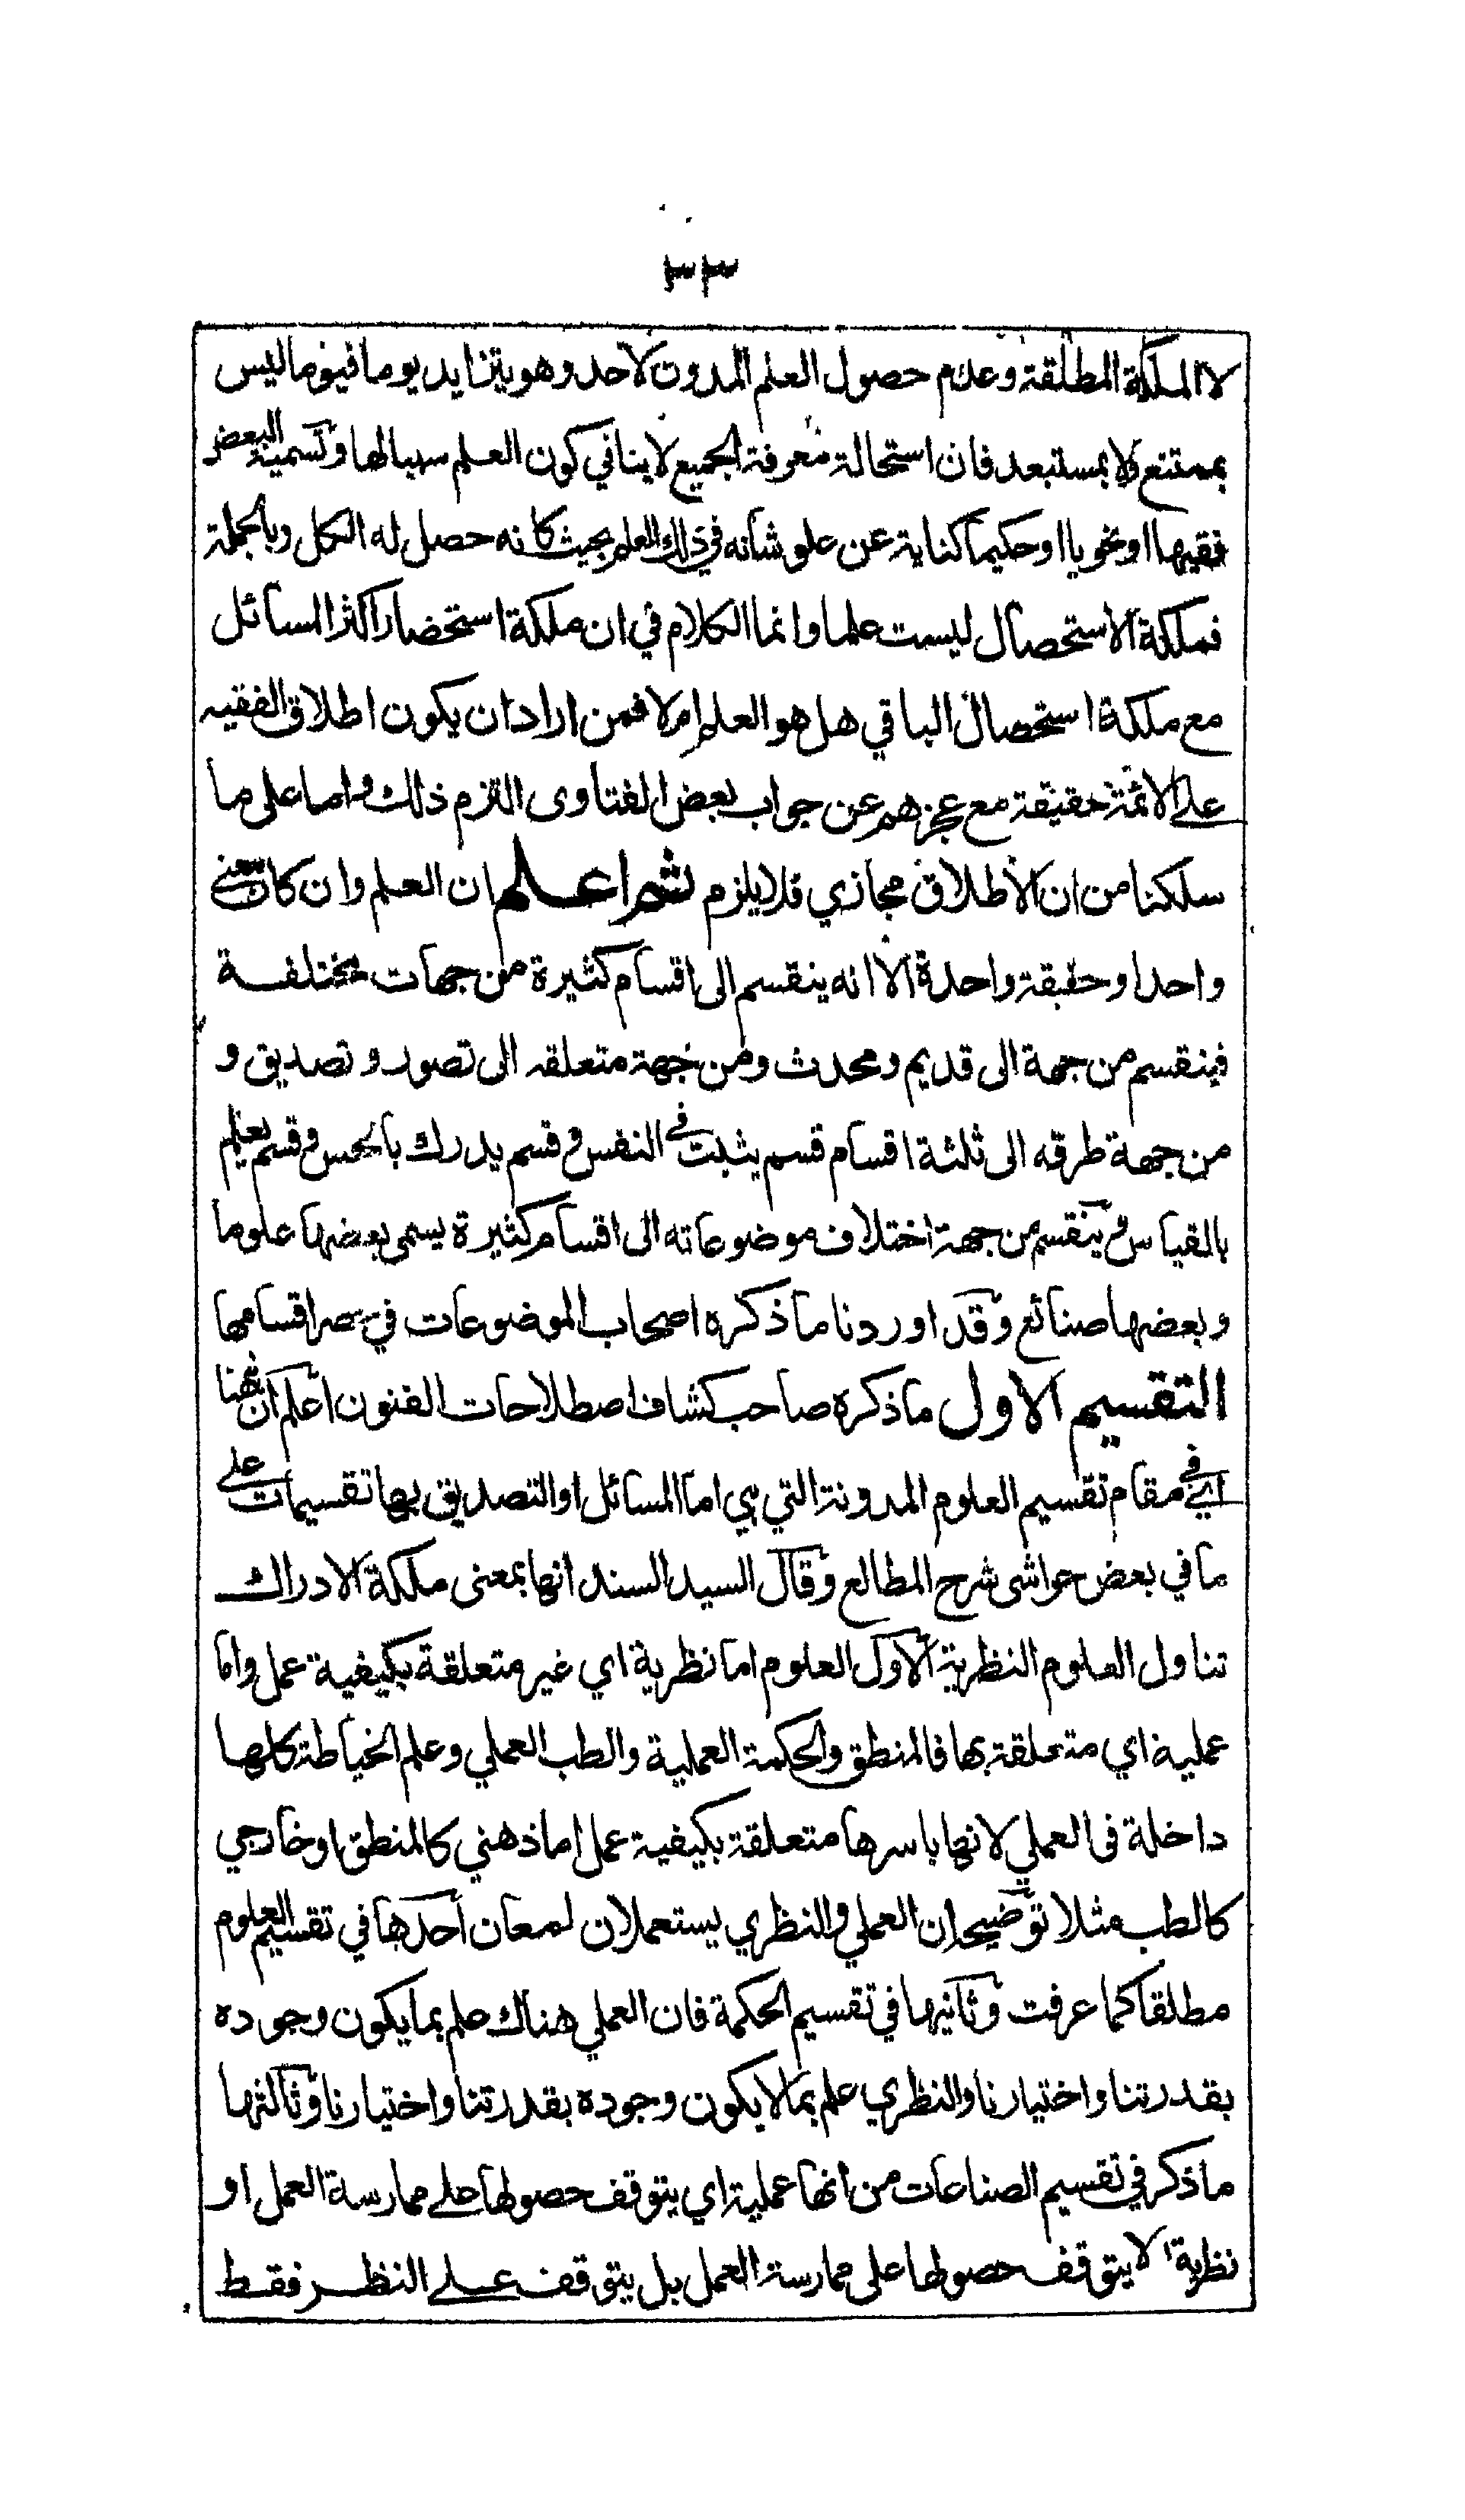 ٣٣
لا الملكة المطلقة وعدم حصول العلم المدون لاحد وهو يتزايد يوما فيوما ليس
بممتنع ولا بمستبعد فان استحالة معرفة الجميع لا ينافي كون العلم سببا لها وتسمية البعض
فقيها او نحويا او حكيما كناية عن علو شانه في ذلك العلم بحيث كانه حصل له الكل وبالجملة
فملكة الاستحصال ليست علما وانما الكلام في ان ملكة استحضار اكثر المسائل
مع ملكة استحصال الباقي هل هو العلم ام لا فمن اراد ان يكون اطلاق الفقيه
على الائمة حقيقة مع عجزهم عن جواب بعض الفتاوى التزم ذلك واما على ما
سلكنا من ان الاطلاق مجازي فلا يلزم ثم اعلم ان العلم وان كان معنى
واحدا وحقيقة واحدة الا انه ينقسم الى اقسام كثيرة من جهات مختلفة
فينقسم من جهة الى قديم ومحدث ومن جهة متعلقه الى تصور وتصديق و
من جهة طرقه الى ثلثة اقسام قسم يثبت في النفس وقسم يدرك بالحس وقسم يعلم
بالقياس وينقسم من جهة اختلاف موضوعاته الى اقسام كثيرة يسمى بعضها علوما
وبعضها صنائع وقد اوردنا ما ذكره اصحاب الموضوعات في حصر اقسامها
التقسيم الاول ما ذكره صاحب كشاف اصطلاحات الفنون اعلم ان ههنا
اي في مقام تقسيم العلوم المدونة التي هي اما المسائل او التصديق بها تقسيمات على
ما في بعض حواشى شرح المطالع وقال السيد السند انها بمعنى ملكة الادراك
تناول العلوم النظرية الاول العلوم اما نظرية اي غير متعلقة بكيفية عمل واما
عملية اي متعلقة بها فالمنطق والحكمة العملية والطب العملي وعلم الخياطة كلها
داخلة فى العملي لانها باسرها متعلقة بكيفية عمل اما ذهني كالمنطق او خارجي
كالطب مثلا توضيحه ان العملي والنظري يستعملان لمعان احدها في تقسيم العلوم
مطلقا كما عرفت وثانيها في تقسيم الحكمة فان العملي هناك علم بما يكون وجوده
بقدرتنا واختيارنا والنظري علم بما لا يكون وجوده بقدرتنا واختيارنا وثالثها
ما ذكر في تقسيم الصناعات من انها عملية اي يتوقف حصولها على ممارسة العمل او
نظرية لا يتوقف حصولها على ممارسة العمل بل يتوقف على النظر فقط